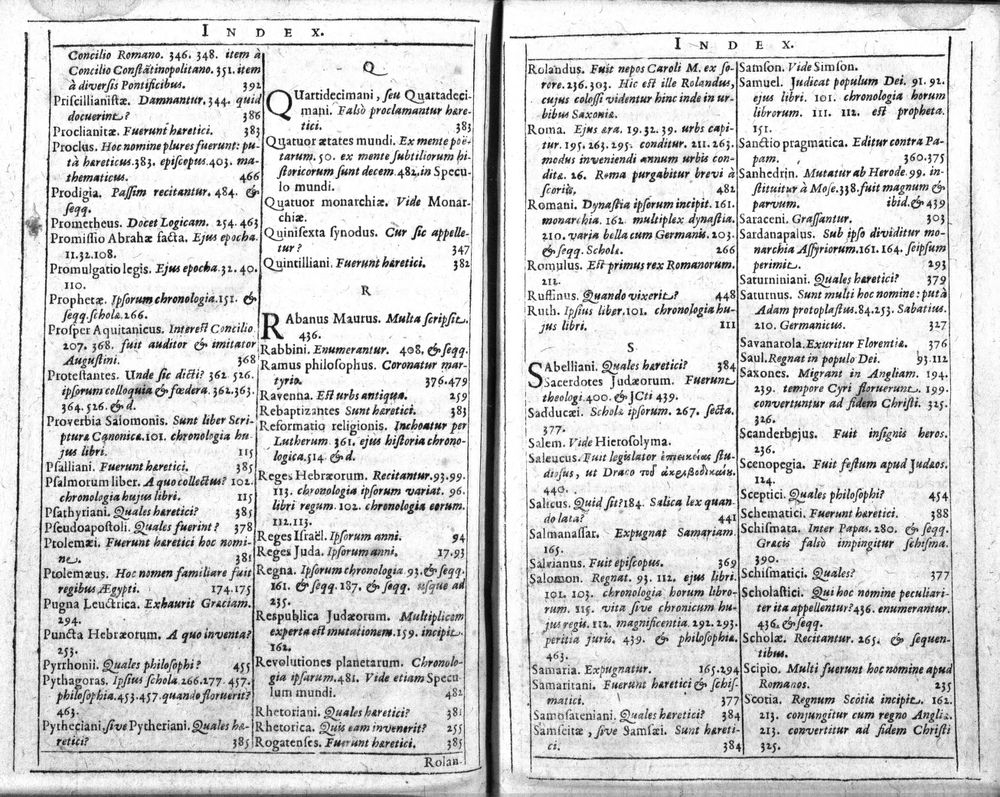 INDEX.
Concilio Romano. 346. 348. item à
Concilio Constātinopolitano. 351. item
à diversis Pontificibus. 392
Priscillianistæ. Damnantur. 344. quid
docuerint? 386
Proclianitæ. Fuerunt hæretici. 383
Proclus. Hoc nomine plures fuerunt: pu-
tà hæreticus. 383. episcopus. 403. ma-
thematicus. 466
Prodigia. Passim recitantur. 484. &
seqq.
Prometheus. Docet Logicam. 254. 463
Promissio Abrahæ facta. Ejus epocha.
11. 32. 108.
Promulgatio legis. Ejus epocha. 32. 40.
110.
Prophetæ. Ipsorum chronologia. 151. &
seqq. schola. 266.
Prosper Aquitanicus. Interest Concilio.
207. 368. fuit auditor & imitator
Augustini. 368
Protestantes. Unde sic dicti? 362. 526.
ipsorum colloquia & fœdera. 362. 363.
364. 526. & d.
Proverbia Salomonis. Sunt liber Scri-
pturæ Canonicæ. 101. chronologia hu-
jus libri. 115
Psalliani. Fuerunt hæretici. 385
Psalmorum liber. A quo collectus? 102.
chronologia hujus libri. 115
Psathyriani. Quales hæretici? 385
Pseudoapostoli. Quales fuerint? 378
Ptolemæi. Fuerunt hæretici hoc nomi-
ne. 381
Ptolemæus. Hoc nomen familiare fuit
regibus Ægypti. 174. 175
Pugna Leuctrica. Exhaurit Græciam.
294.
Puncta Hebræorum. A quo inventa?
253.
Pyrrhonii. Quales philosophi? 455
Pythagoras. Ipsius schola. 266. 277. 457.
philosophia. 453. 457. quando floruerit?
463.
Pytheciani, sive Pytheriani. Quales hæ-
retici? 385
Q
Quartidecimani, seu Quartadeci-
mani. Falsò proclamantur hære-
tici. 383
Quatuor ætates mundi. Ex mente poë-
tarum. 50. ex mente subtiliorum hi-
storicorum sunt decem. 482. in Specu-
lo mundi.
Quatuor monarchiæ. Vide Monar-
chiæ.
Quinisexta synodus. Cur sic appelle-
tur? 347
Quintilliani. Fuerunt hæretici. 382
R
Rabanus Maurus. Multa scripsit.
436.
Rabbini. Enumerantur. 408. & seqq.
Ramus philosophus. Coronatur mar-
tyrio. 376. 479
Ravenna. Est urbs antiqua. 259
Rebaptizantes Sunt hæretici. 383
Reformatio religionis. Inchoatur per
Lutherum. 361. ejus historia chrono-
logica. 514. & d.
Reges Hebræorum. Recitantur. 93. 99.
113. chronologia ipsorum variat. 96.
libri regum. 102. chronologia eorum.
112. 113.
Reges Israël. Ipsorum anni. 94
Reges Juda. Ipsorum anni. 17. 93
Regna. Ipsorum chronologia. 93. & seqq.
161. & seqq. 187. & seqq. usque ad
235.
Respublica Judæorum. Multiplicem
experta est mutationem. 159. incipit.
162.
Revolutiones planetarum. Chronolo-
gia ipsarum. 481. Vide etiam Specu-
lum mundi. 482
Rhetoriani. Quales hæretici? 381
Rhetorica. Quis eam invenerit? 255
Rogatenses. Fuerunt hæretici. 385
Rolan-
INDEX.
Rolandus. Fuit nepos Caroli M. ex so-
rore. 236. 303. Hic est ille Rolandus,
cujus colossi videntur hinc inde in ur-
bibus Saxoniæ.
Roma. Ejus æra. 19. 32. 39. urbs capi-
tur. 195. 263. 295. conditur. 211. 263.
modus inveniendi annum urbis con-
ditæ. 26. Roma purgabitur brevi à
scoriis. 482
Romani. Dynastia ipsorum incipit. 161.
monarchia. 162. multiplex dynastia.
210. varia bella cum Germanis. 203.
& seqq. Schola. 266
Romulus. Est primus rex Romanorum.
212.
Ruffinus. Quando vixerit? 448
Ruth. Ipsius liber. 101. chronologia hu-
jus libri. 111
S
Sabelliani. Quales hæretici? 384
Sacerdotes Judæorum. Fuerunt
theologi. 400. & JCti 439.
Sadducæi. Schola ipsorum. 267. secta.
377.
Salem. Vide Hierosolyma.
Saleucus. Fuit legislator ἐπιεικείας stu-
diosus, ut Draco τοῦ ἀκριβοδικαίου.
440.
Salicus. Quid sit? 184. Salica lex quan-
do lata? 441
Salmanassar. Expugnat Samariam.
165.
Salvianus. Fuit episcopus. 369
Salomon. Regnat. 93. 112. ejus libri.
101. 103. chronologia horum libro-
rum. 115. vita sive chronicum hu-
jus regis. 112. magnificentia. 292. 293.
peritia juris. 439. & philosophia.
463.
Samaria. Expugnatur. 165. 294
Samaritani. Fuerunt hæretici & schis-
matici. 377
Samosateniani. Quales hæretici? 384
Samseitæ, sive Samsæi. Sunt hæreti-
ci. 384
Samson. Vide Simson.
Samuel. Judicat populum Dei. 91. 92.
ejus libri. 101. chronologia horum
librorum. 111. 112. est propheta.
151.
Sanctio pragmatica. Editur contra Pa-
pam. 360. 375
Sanhedrin. Mutatur ab Herode. 99. in-
stituitur à Mose. 338. fuit magnum &
parvum. ibid. & 439
Saraceni. Grassantur. 303
Sardanapalus. Sub ipso dividitur mo-
narchia Assyriorum. 161. 164. seipsum
perimit. 293
Saturniniani. Quales hæretici? 379
Saturnus. Sunt multi hoc nomine: putà
Adam protoplastus. 84. 253. Sabatius.
210. Germanicus. 327
Savanarola. Exuritur Florentiæ. 376
Saul. Regnat in populo Dei. 93. 112
Saxones. Migrant in Angliam. 194.
239. tempore Cyri floruerunt. 199.
convertuntur ad fidem Christi. 325.
326.
Scanderbejus. Fuit insignis heros.
236.
Scenopegia. Fuit festum apud Judæos.
124.
Sceptici. Quales philosophi? 454
Schematici. Fuerunt hæretici. 388
Schismata. Inter Papas. 280. & seqq.
Græcis falsò impingitur schisma.
390.
Schismatici. Quales? 377
Scholastici. Qui hoc nomine peculiari-
ter ita appellentur? 436. enumerantur.
436. & seqq.
Scholæ. Recitantur. 265. & sequen-
tibus.
Scipio. Multi fuerunt hoc nomine apud
Romanos. 235
Scotia. Regnum Scotiæ incipit. 162.
213. conjungitur cum regno Angliæ.
213. convertitur ad fidem Christi
325.